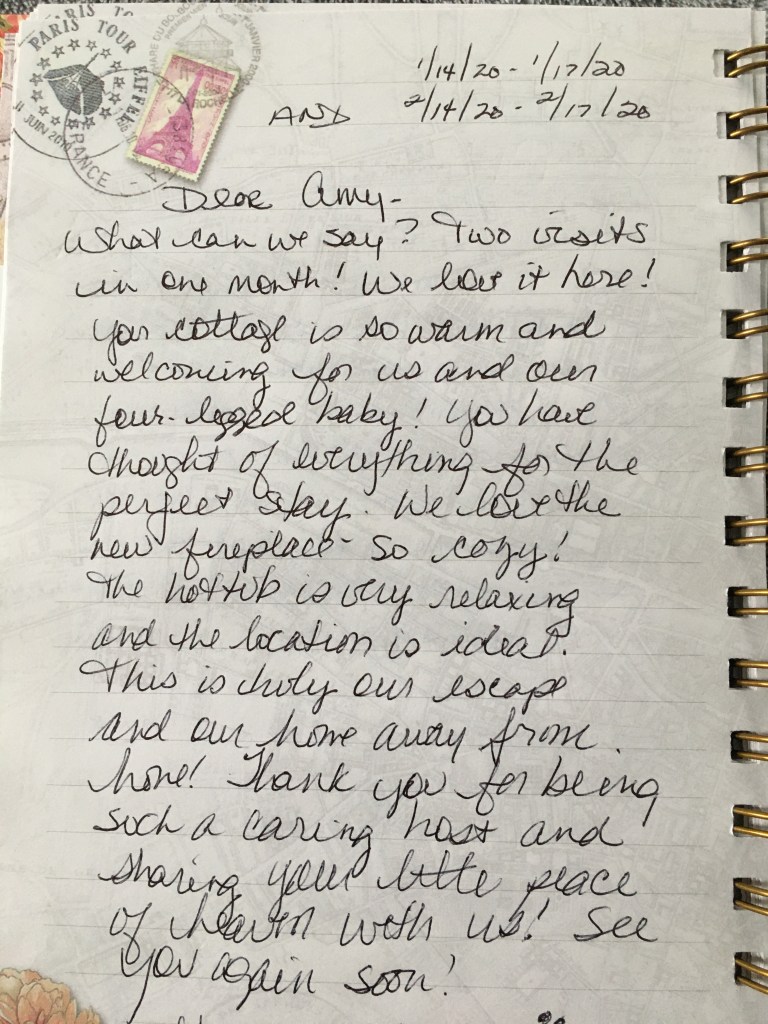 PARIS TOUR EIFFEL
JUIN 2010
FRANCE
1/14/20 - 1/17/20
AND 2/14/20 - 2/17/20
Dear Amy-
What can we say? Two visits
in one month! We love it here!
Your cottage is so warm and
welcoming for us and our
four-legged baby! You have
thought of everything for the
perfect stay. We love the
new fireplace - so cozy!
The hottub is very relaxing
and the location is ideal.
This is truly our escape
and our home away from
home! Thank you for being
such a caring host and
sharing your little peace
of heaven with us! See
you again soon!